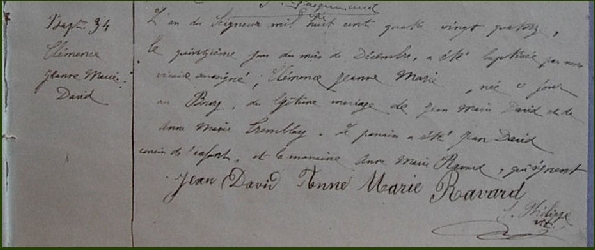 Bapt. 34
Clémence
Jeanne Marie
David
L'an du Seigneur mil huit cent quatre vingt quatorze,
le quinzième jour du mois de Décembre, a été baptisée par nous
vicaire soussigné, Clémence Jeanne Marie, née ce jour
au du légitime mariage de Jean Marie David et de
Anne Marie Tremblay. Le parrain a été Jean David
cousin de l'enfant, et la marraine Anne Marie Ravard, qui signent
Jean David Anne Marie Ravard